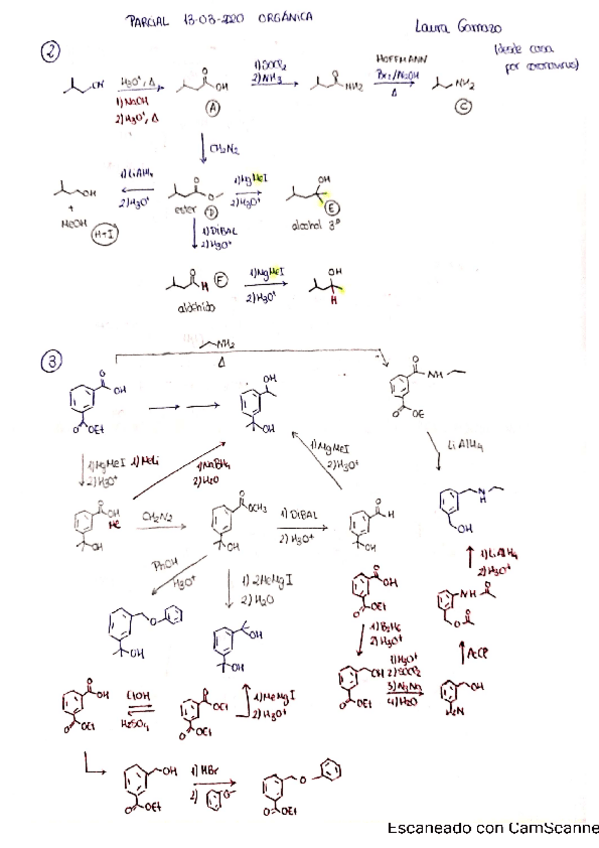 PARCIAL 13-03-2020 ORGÁNICA
Laura Gamazo
(desde casa
por coronavirus)
2
CN H3O+, Δ
1) NaOH
2) H3O+, Δ
O OH
A
1) SOCl2
2) NH3
O NH2
HOFFMANN
Br2/NaOH
Δ
NH2
C
CH2N2
OH
+
MeOH
H+I
1) LiAlH4
2) H3O+
O O
ester D
1) MgMeI
2) H3O+
OH
E
alcohol 3º
1) DIBAL
2) H3O+
O H F
aldehido
1) MgMeI
2) H3O+
OH
H
3
NH2
Δ
O OH
O OEt
OH
OH
O NH
O OE
LiAlH4
1) MgMeI 1) MeLi
2) H3O+
1) NaBH4
2) H2O
1) MgMeI
2) H3O+
O OH Me
OH
CH2N2
O OCH3
OH
1) DIBAL
2) H3O+
O H
OH
N H
OH
PhOH
H3O+
1) 2MeMgI
2) H2O
1) LiAlH4
2) H3O+
O
OH
OH
OH
O OH
O OEt
1) B2H6
2) H3O+
NH O
O O
AcCl
OH
O OEt
1) H3O+
2) SOCl2
3) NaN3
4) H2O
OH
H2N
O OH
O OEt
EtOH
H2SO4
O OEt
O OEt
1) MeMgI
2) H3O+
OH
O OEt
1) HBr
2) O-
O
O OEt
Escaneado con CamScanne